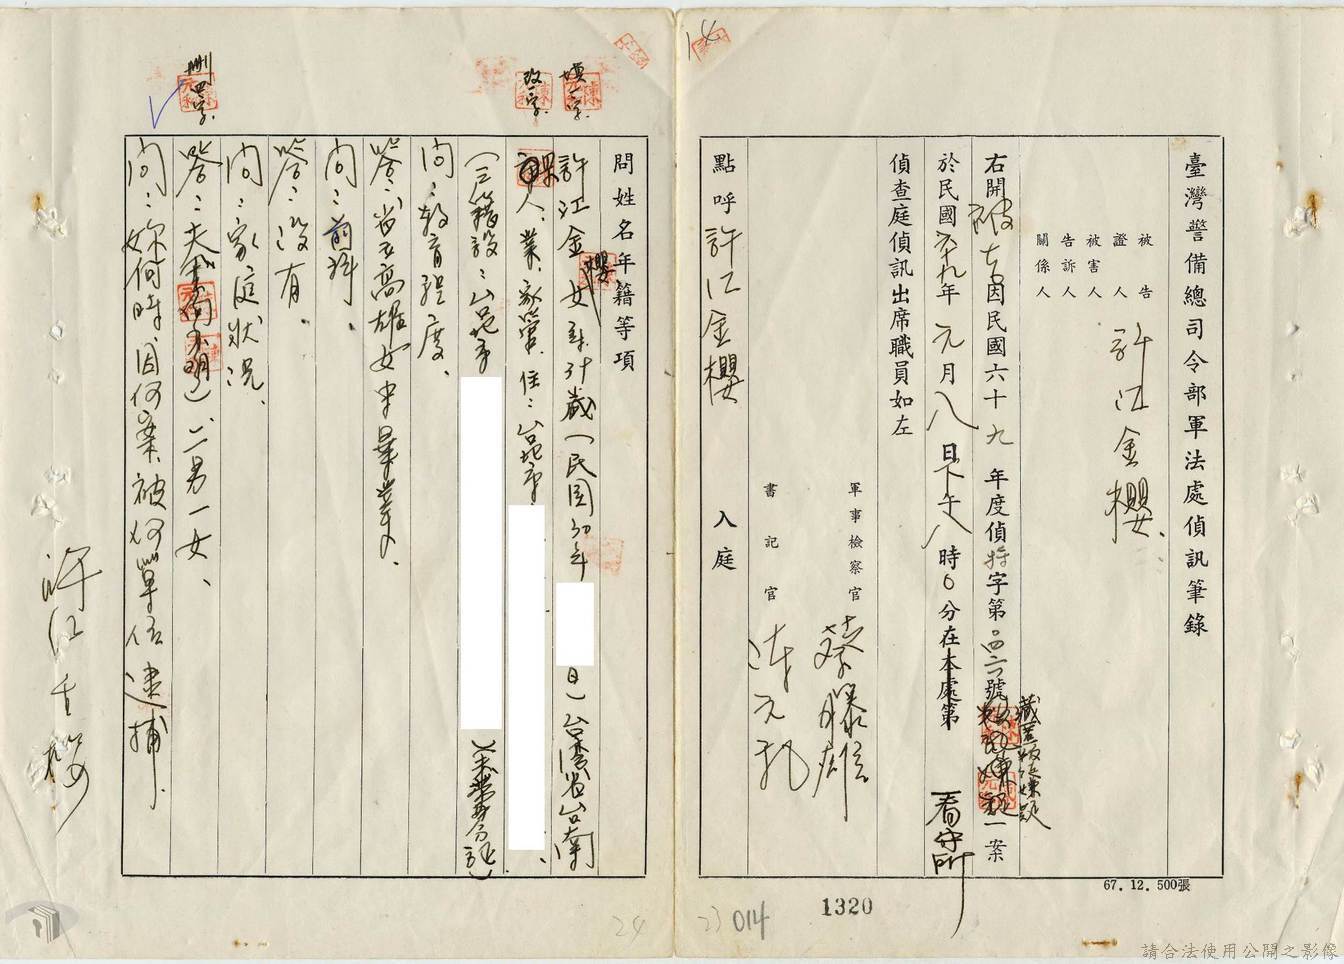 臺灣警備總司令部軍法處偵訊筆錄
被告
證人
被害人
告訴人
關係人
許江金櫻
右開被告因民國六十九年度偵特字第 號 一案
藏匿叛徒嫌疑
於民國六十九年元月八日下午八時0分在本處第
看守所
偵查庭偵訊出席職員如左
軍事檢察官 蔡藤雄
書記官
點呼許江金櫻 入庭
67. 12. 500張
1320
014
23
14
問姓名年籍等項
許江金櫻女 歲(民國30年 日)台灣省台南
人、業:家管、住:台北市 、
(三籍設:台北市 )(未帶身分證)
問:教育程度、
答:省立高雄女中畢業、
問:前科、
答:沒有、
問:家庭狀況、
答:夫 二男一女、
問:妳何時因何案被何單位逮捕、
填一字、
改一字、
刪四字、
許江金櫻
24
請合法使用公開之影像